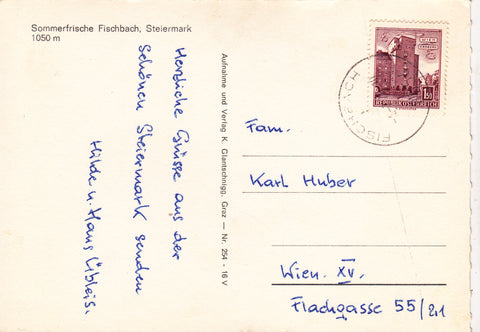 Sommerfrische Fischbach, Steiermark
1050 m
Herzliche Grüsse aus der
Schönen Steiermark senden
Hilde u. Hans
Aufnahme und Verlag K. Glantschnigg, Graz — Nr. 254 - 16 V
WIEN
ERDBERG
1.50
REPUBLIK ÖSTERREICH
FISCHBACH
Fam.
Karl Huber
Wien. XV.
Flachgasse 55/21